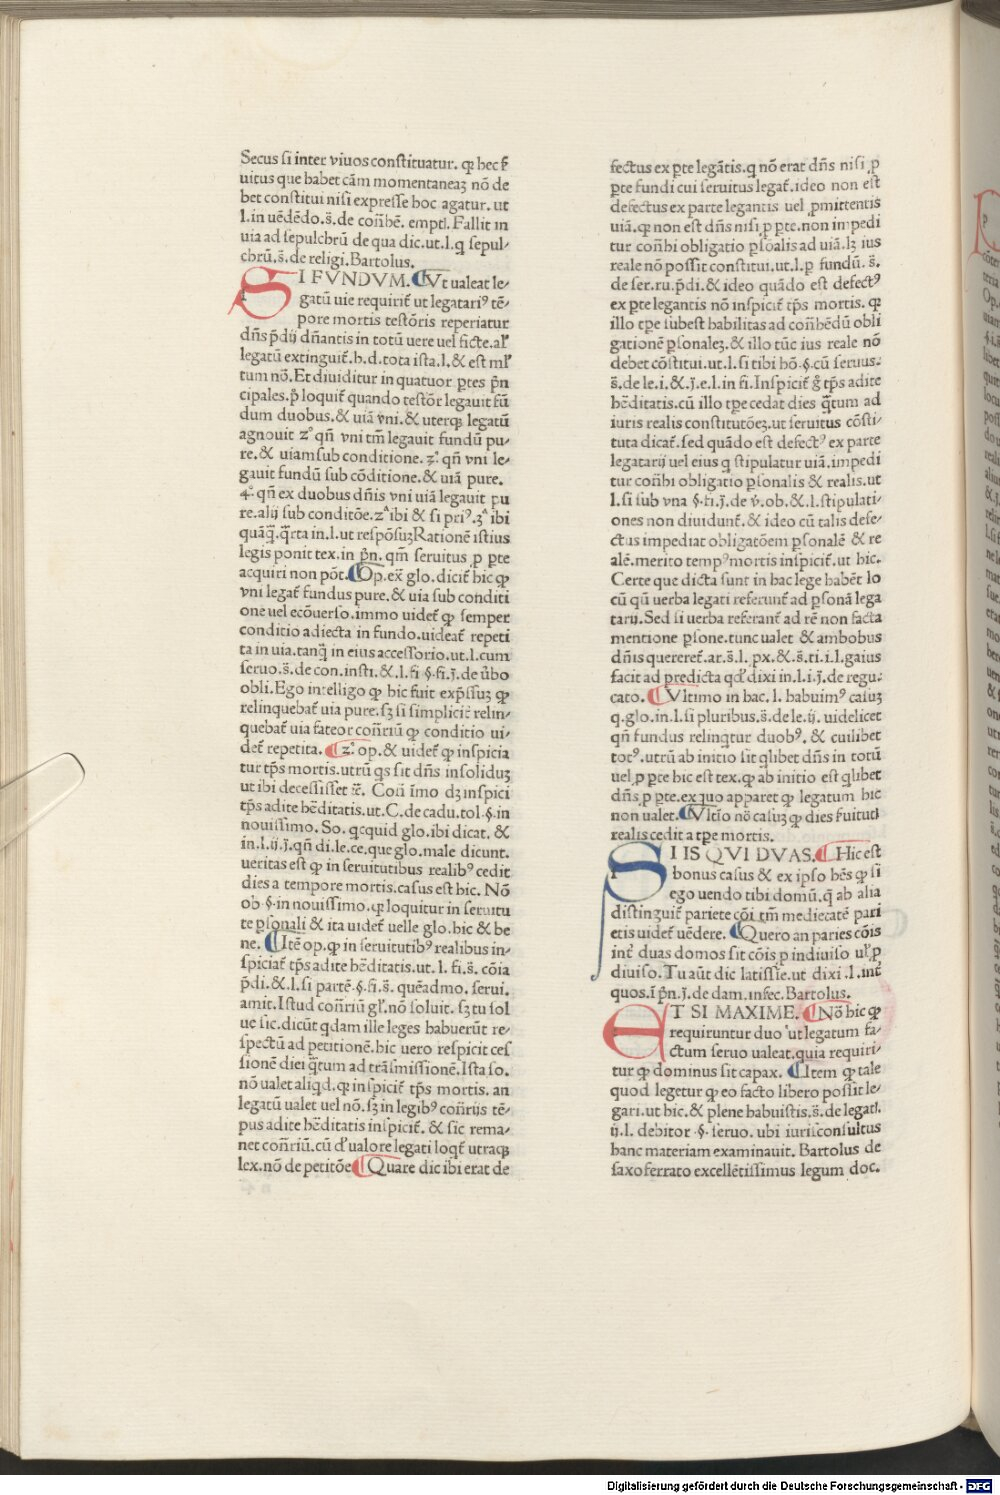 Secus si inter viuos constituatur. qꝫ hec ẜ
uitus que habet cām momentaneaꝫ nō de
bet constitui nisi expresse hoc agatur. ut
l. in uēdēdo. s̄. de con̄hē. empti. Fallit in
uia ad sepulchrū de qua dic. ut. l. q sepul⸗
chrū. s̄. de religi. Bartolus.
SI FVNDVM. Vt ualeat le⸗
gatū uie requirit̄ ut legatariꝰ tē⸗
pore mortis testōris reperiatur
dn̄s p̄dij dn̄antis in totū uere uel ficte. al'
legatū extinguit̄. h. d. tota ista. l. & est ml'
tum nō. Et diuiditur in quatuor ꝑtes p̄n
cipales. p̄ loquit̄ quando testōr legauit fū
dum duobus. & uiā vni. & uterqꝫ legatū
agnouit 2° qn̄ vni tm̄ legauit fundū pu⸗
re. & uiam sub conditione. 3°. qn̄ vni le⸗
gauit fundū sub cōditione. & uiā pure.
4°. qn̄ ex duobus dn̄is vni uiā legauit pu
re. alij sub conditōe. 2ª ibi & si priꝰ. 3ª ibi
quāq̄. q̄rta in. l. ut respōsuꝫ Rationē istius
legis ponit tex. in p̄n. qm̄ seruitus ꝓ ꝑte
acquiri non pōt. Op. ex̄ glo. dicit̄ hic ꝙ
vni legat̄ fundus pure. & uia sub conditi
one uel ecōuerso. immo uidet̄ ꝙ semper
conditio adiecta in fundo. uideat̄ repeti
ta in uia. tanq̄ in eius accessorio. ut. l. cum
seruo. s̄. de con. insti. & l. fi §. fi. j. de u̇bo
obli. Ego intelligo ꝙ hic fuit exp̄ssuꝫ ꝙ
relinquebat̄ uia pure. sꝫ si simplicit̄ relin⸗
quebat̄ uia fateor con̄riū ꝙ conditio ui⸗
det̄ repetita. 2°. op. & uidet̄ ꝙ inspicia
tur tp̄s mortis. utrū qs sit dn̄s insoliduꝫ
ut ibi decessisset ⁊c̄. Con̄ īmo dꝫ inspici
tp̄s adite hēditatis. ut. C. de cadu. tol. §. in
nouissimo. So. qcquid glo. ibi dicat. &
in. l. ij. j. qn̄ di. le. ce. que glo. male dicunt.
ueritas est ꝙ in seruitutibus realibꝰ cedit
dies a tempore mortis. casus est hic. Nō
ob. §. in nouissimo. qꝫ loquitur in seruitu
te ꝑsonali & ita uidet̄ uelle glo. hic & be
ne. Itē op. ꝙ in seruitutibꝰ realibus in⸗
spiciat̄ tp̄s adite hēditatis. ut. l. fi. s̄. cōia
p̄di. & l. si partē. §. fi. s̄. quēadmo. serui.
amit. Istud con̄riū gl'. nō soluit. sꝫ tu sol
ue sic. dicūt qdam ille leges habuerūt re⸗
spectū ad petitionē. hic uero respicit ces
sionē diei q̄tum ad trāsmissionē. Ista so.
nō ualet aliqd. qꝫ inspicit̄ tp̄s mortis. an
legatū ualet uel nō. sꝫ in legibꝰ con̄rijs tē⸗
pus adite hēditatis inspicit̄. & sic rema⸗
net con̄riū. cū d' ualore legati loqt̄ utraqꝫ
lex. nō de petitōe Quare dic ibi erat de
fectus ex ꝑte legātis. q nō erat dn̄s nisi ꝓ
ꝑte fundi cui seruitus legat̄. ideo non est
defectus ex parte legantis uel ꝓmittentis
uiā. qꝫ non est dn̄s nisi ꝓ ꝑte. non impedi
tur con̄hi obligatio ꝑsoalis ad uiā. lꝫ ius
reale nō possit constitui. ut. l. ꝑ fundū. s̄.
de ser. ru. p̄di. & ideo quādo est defectꝰ
ex ꝑte legantis nō inspicit̄ tp̄s mortis. qꝫ
illo tꝑe iubest habilitas ad con̄hēdū obli
gationē ꝑsonaleꝫ. & illo tūc ius reale nō
debet cōstitui. ut. l. si tibi hō. §. cū seruus.
s̄. de le. i. & .j. e. l. in fi. Inspicit̄ g̊ tp̄s adite
hēditatis. cū illo tꝑe cedat dies q̄tum ad
iuris realis constitutōeꝫ. ut seruitus cōsti⸗
tuta dicat̄. sed quādo est defectꝰ ex parte
legatarij uel eius q stipulatur uiā. impedi
tur con̄hi obligatio ꝑsonalis & realis. ut
l. si sub vna §. fi. j. de v̇. ob. & .l. stipulati⸗
ones non diuidunt̄. & ideo cū talis defe⸗
ctus impediat obligatōem ꝑsonalē & re
alē. merito tempꝰ mortis inspicit̄. ut hic.
Certe que dicta sunt in hac lege habēt lo
cū qū uerba legati referunt̄ ad ꝑsonā lega
tarij. Sed si uerba referant̄ ad rē non facta
mentione ꝑsone. tunc ualet & ambobus
dn̄is quereret̄. ar. s̄. l. px. & .s̄. ti. i. l. gaius
facit ad predicta qd' dixi in. l. i. j. de regu.
cato. Vltimo in hac. l. habuimꝰ casuꝫ
q. glo. in. l. si pluribus. s̄. de le. ij. uidelicet
qn̄ fundus relinqtur duobꝰ. & cuilibet
totꝰ. utrū ab initio sit qlibet dn̄s in totū
uel ꝓ ꝑte hic est tex. ꝙ ab initio est qlibet
dn̄s ꝓ ꝑte. ex quo apparet ꝙ legatum hic
non ualet. Vltīo nō casuꝫ ꝙ dies fuituti
realis cedit a tꝑe mortis.
SI IS QVI DVAS. Hic est
bonus casus & ex ipso hēs ꝙ si
ego uendo tibi domū. q̄ ab alia
distinguit̄ pariete cōi tm̄ medietatē pari
etis uidet̄ uēdere. Quero an paries cōis
int̄ duas domos sit cōis ꝓ indiuiso ul' ꝓ
diuiso. Tu aūt dic latissie. ut dixi .l. int̄
quos. ī p̄n. j. de dam. infec. Bartolus.
ET SI MAXIME. Nō hic ꝙ
requiruntur duo ut legatum fa⸗
ctum seruo ualeat. quia requiri⸗
tur ꝙ dominus sit capax. Item ꝙ tale
quod legetur ꝙ eo facto libero possit le⸗
gari. ut hic. & plene habuistis. s̄. de legati.
ij. l. debitor §. seruo. ubi iurisconsultus
hanc materiam examinauit. Bartolus de
saxoferrato excellētissimus legum doc.
Digitalisierung gefördert durch die Deutsche Forschungsgemeinschaft - DFG